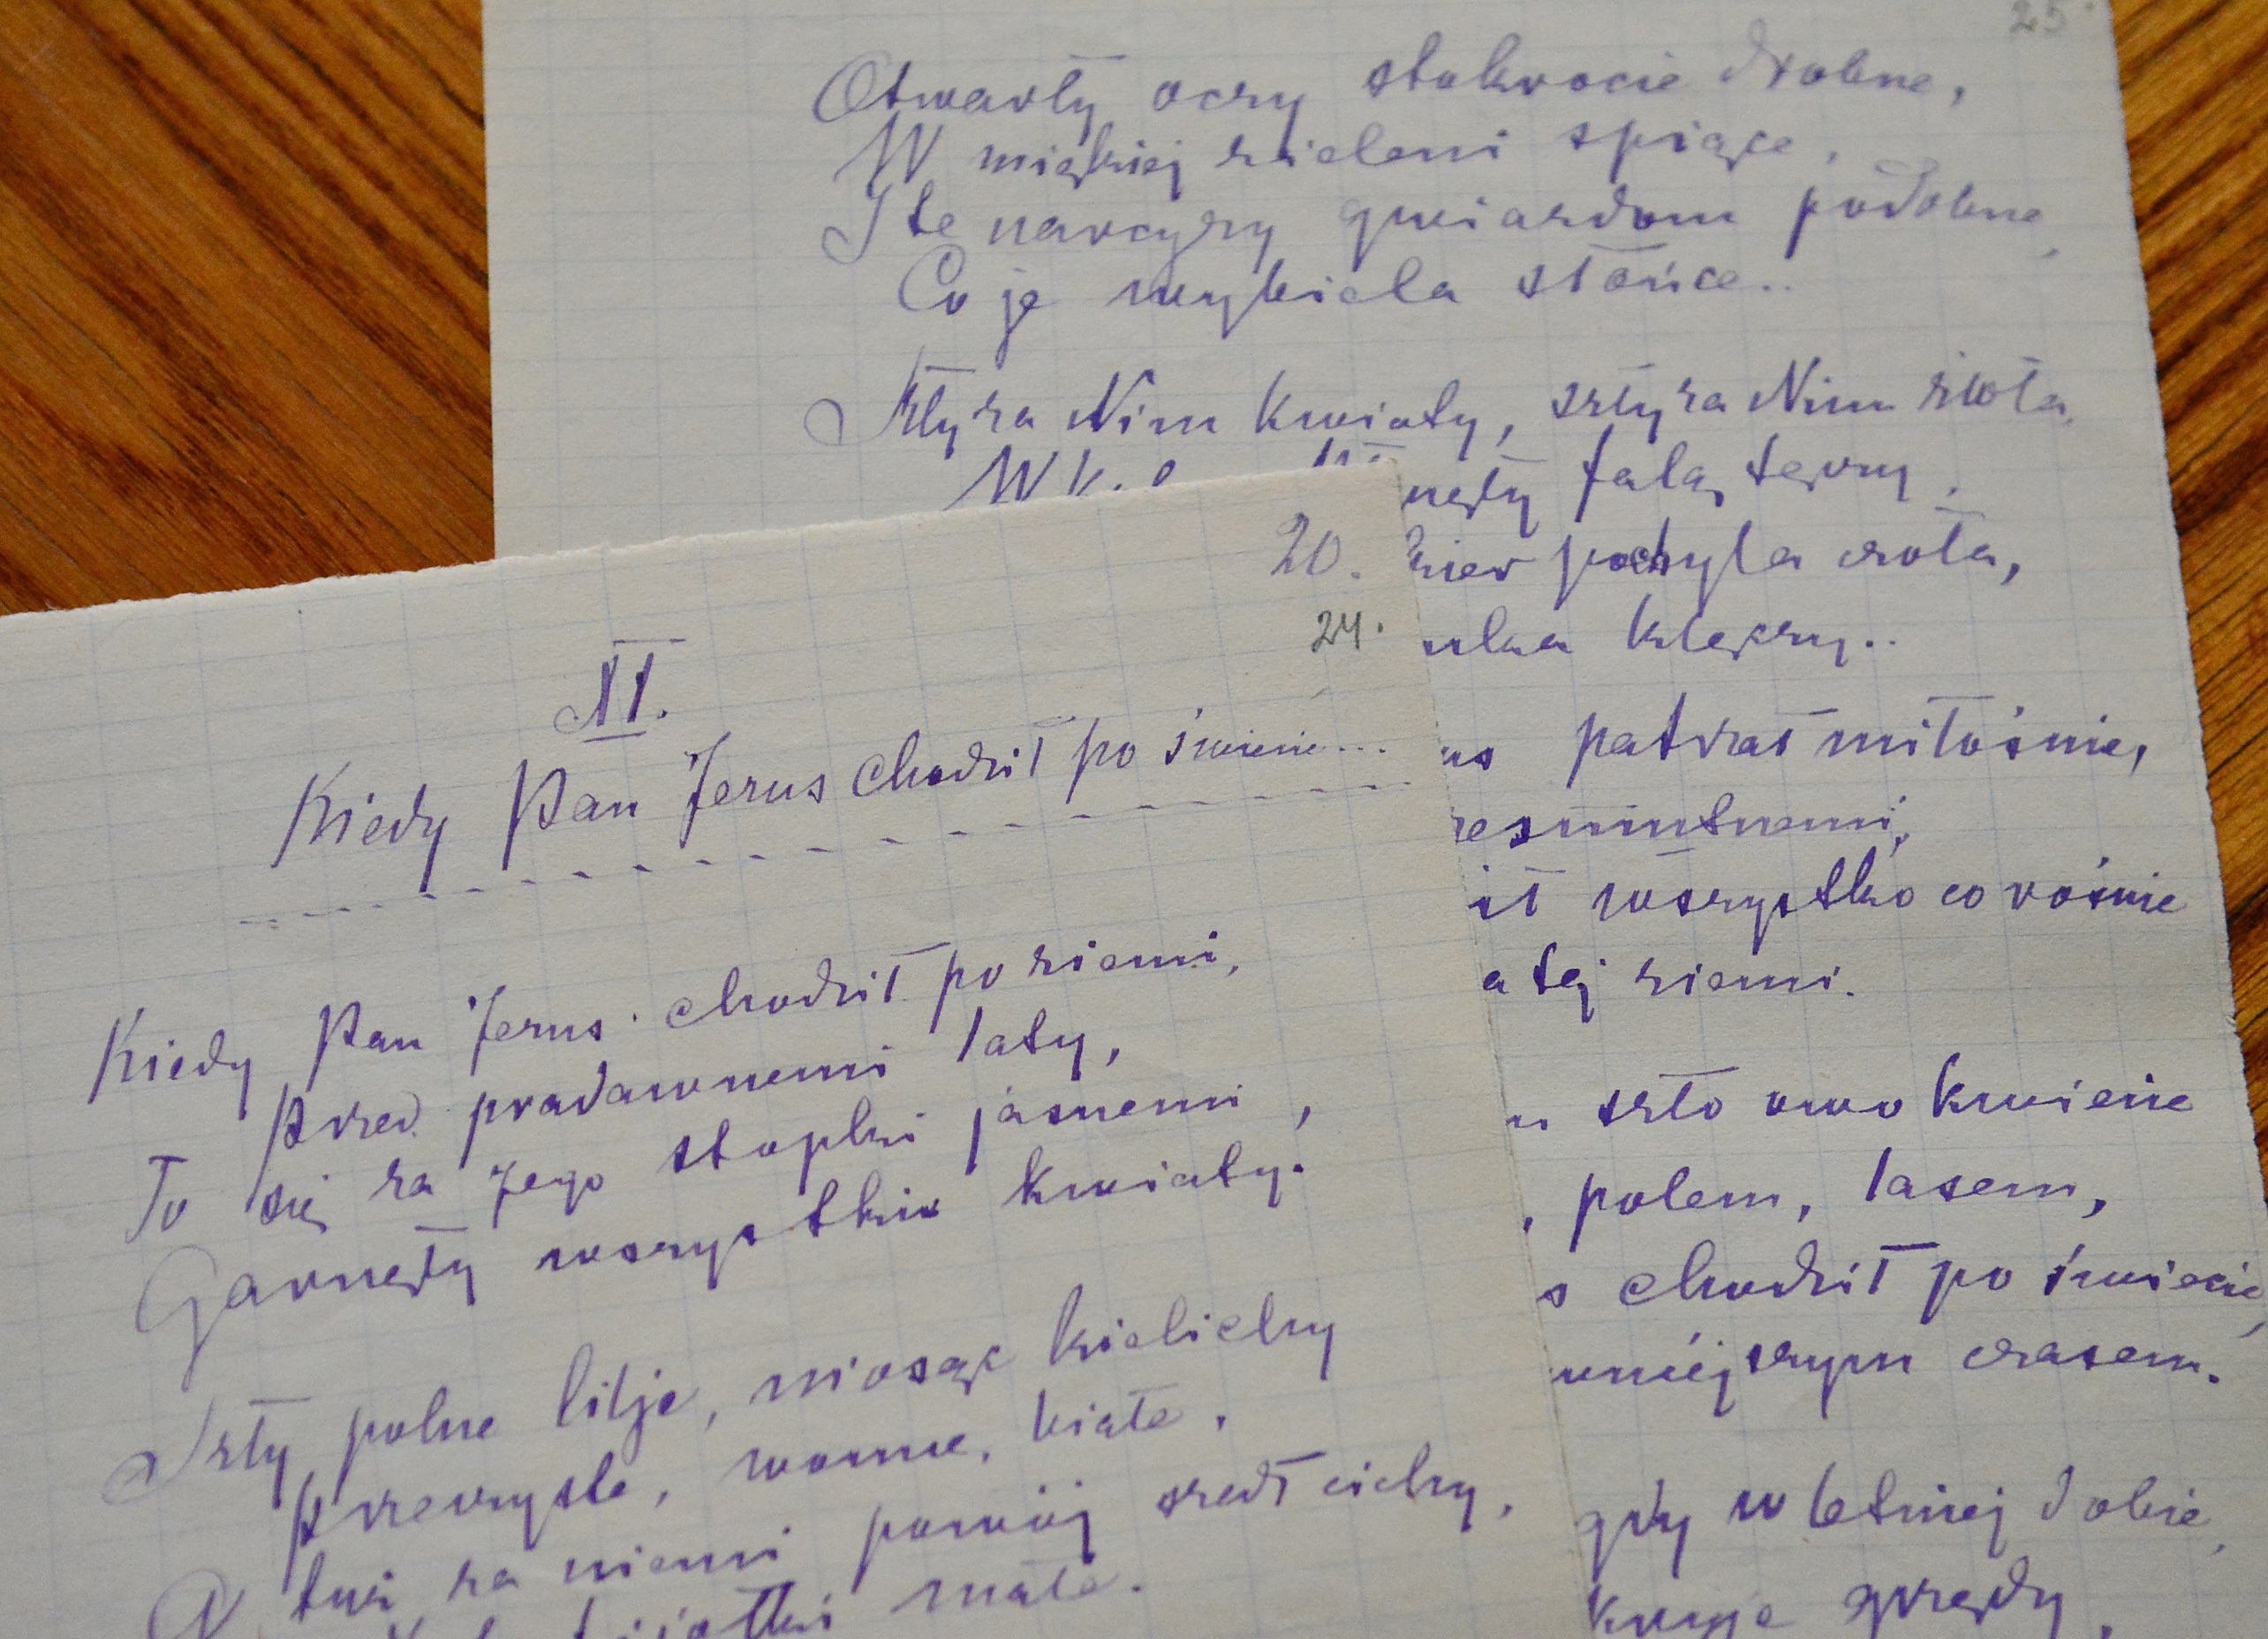 25.
Otwarły oczy stokrocie drobne,
W miękiej zieleni śpiące,
I te narcyzy gwiazdom podobne,
Co je wybiela słońce..
Szły za Nim kwiaty, szły za Nim zioła,
W
falą tęczy,
pochyla czoła,
klęczy..
patrzał miłośnie,
ił wszystko co rośnie
a tej ziemi.
szło owo kwiecie
, polem, lasem,
s chodził po świecie,
czasem.
gdy w letniej dobie,
grzędy,
20.
24.
XI.
Kiedy Pan Jezus chodził po świecie...
Kiedy Pan Jezus chodził po ziemi,
Przed pradawnemi laty,
To się za Jego stopki jasnemi,
Garnęły wszystkie kwiaty.
Szły polne lilje, niosąc kielichy
Przeczyste, wonne, białe,
A tuż za niemi powój szedł cichy,
małe.